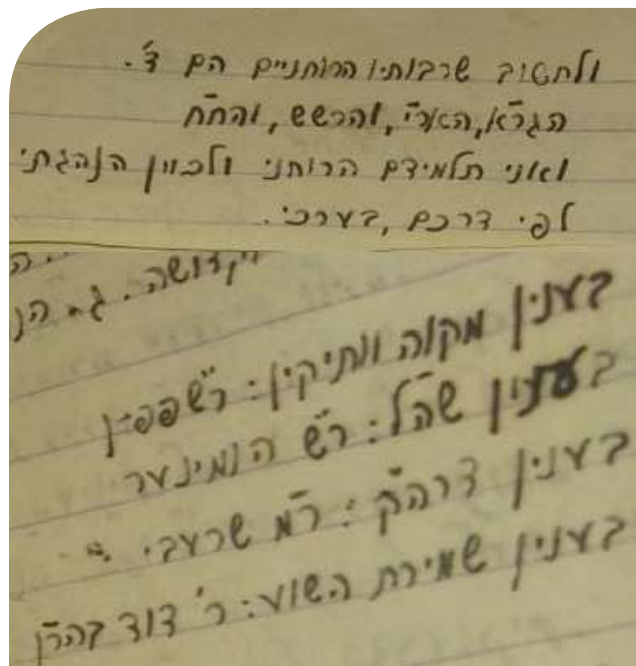 ולחשוב שרבותיו הרוחניים הם ד'.
הגר"א, האר"י, והרשש, והח"ח
ואני תלמידם הרוחני ולכוון הנהגתי
לפי דרכם, בערכי.
וקדושה. גם
בענין מקוה וותיקין: ר"ש פפיין
בענין שה"ל: ר"ש הומינער
בענין דרה"ק: ר"מ שרעבי
בענין שמירת השוע: ר' דוד בהר"ן